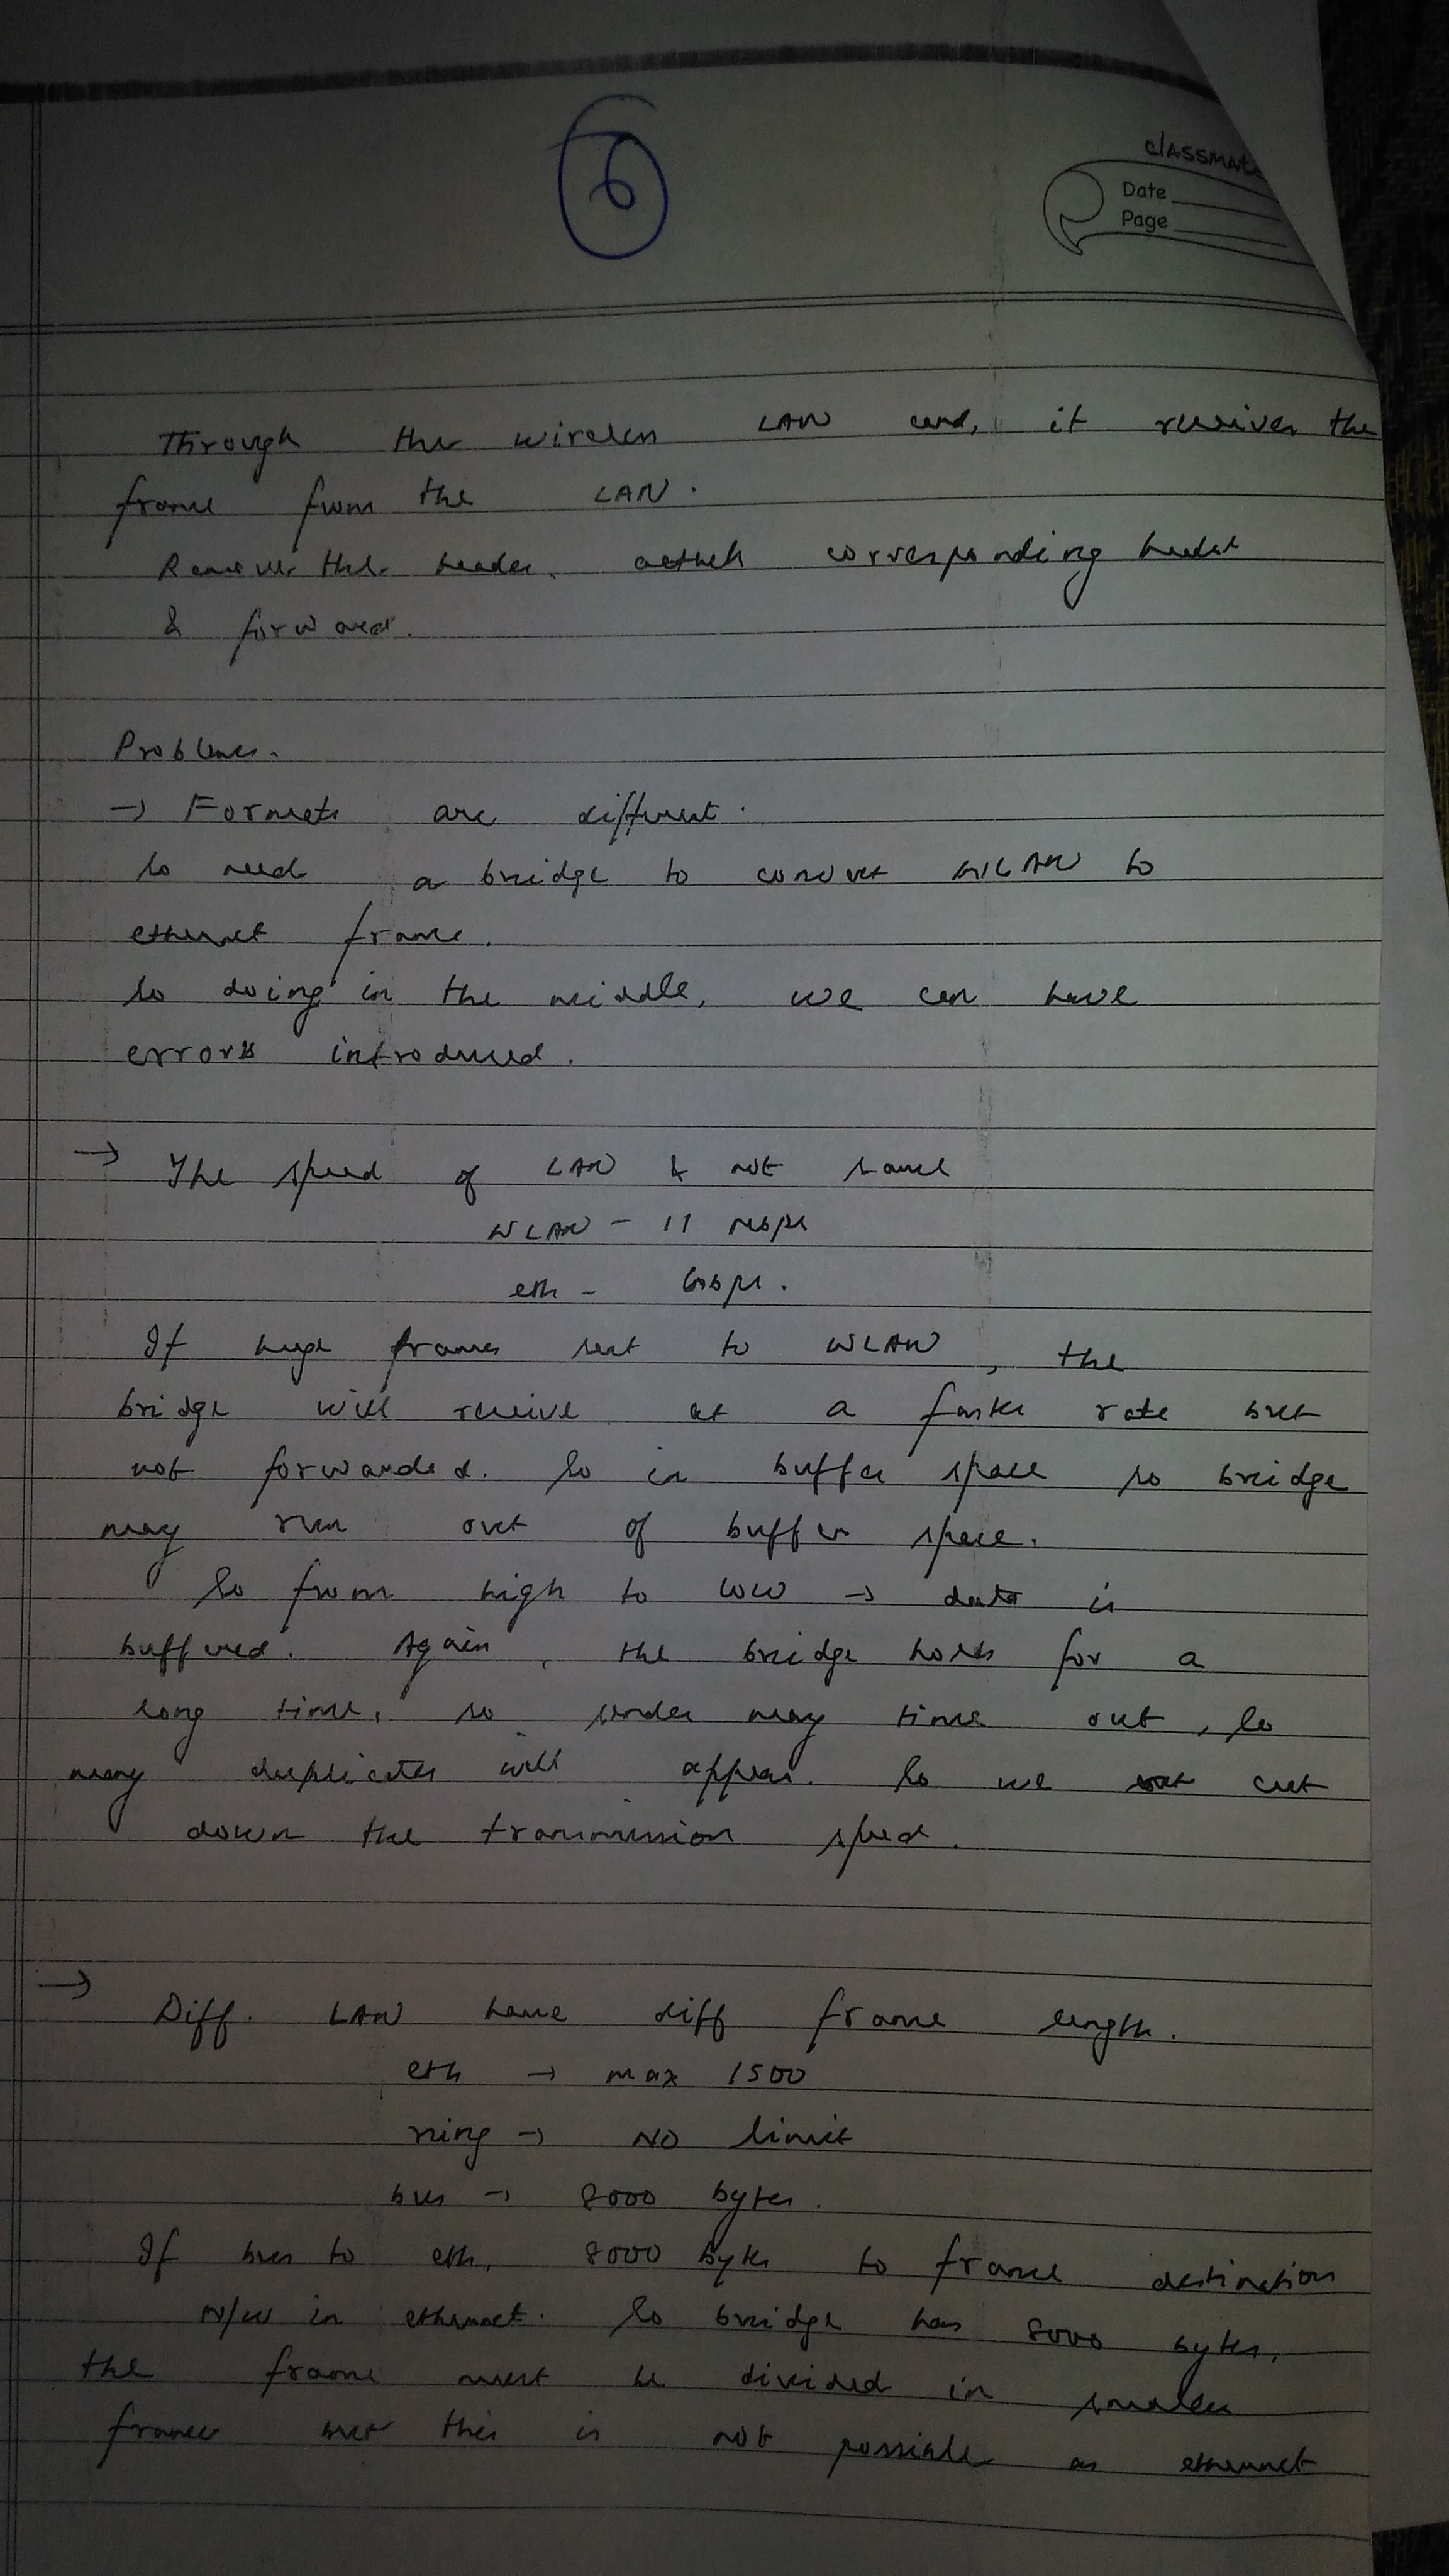 6
classmate
Date
Page
Through the wireless LAN card, it receives the
frame from the LAN.
Remove the header, attach corresponding header
& forward.
Problems.
→ Formats are different.
So need a bridge to convert WLAN to
ethernet frame.
So doing in the middle, we can have
errors introduced.
→ The speed of LAN & not same
WLAN - 11 mbps
eth - Gbps.
If huge frames sent to WLAN, the
bridge will receive at a faster rate but
not forwarded. So in buffer space so bridge
may run out of buffer space.
So from high to low → data is
buffered. Again, the bridge holds for a
long time, so sender may time out, so
many duplicates will appear. So we cut
down the transmission speed.
→ Diff. LAN have diff frame length.
eth → max 1500
ring → NO limit
bus → 8000 bytes.
If bus to eth, 8000 bytes to frame destination
n/w in ethernet. So bridge has 8000 bytes,
the frame must be divided in smaller
frames but this is not possible as ethernet